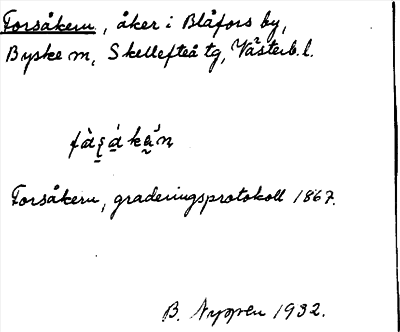 Forsåkern, åker i Blåfors by,
Byske m, Skellefteå tg, Västerb. l.
Forsåkern, graderingsprotokoll 1867.
B. Nygren 1932.